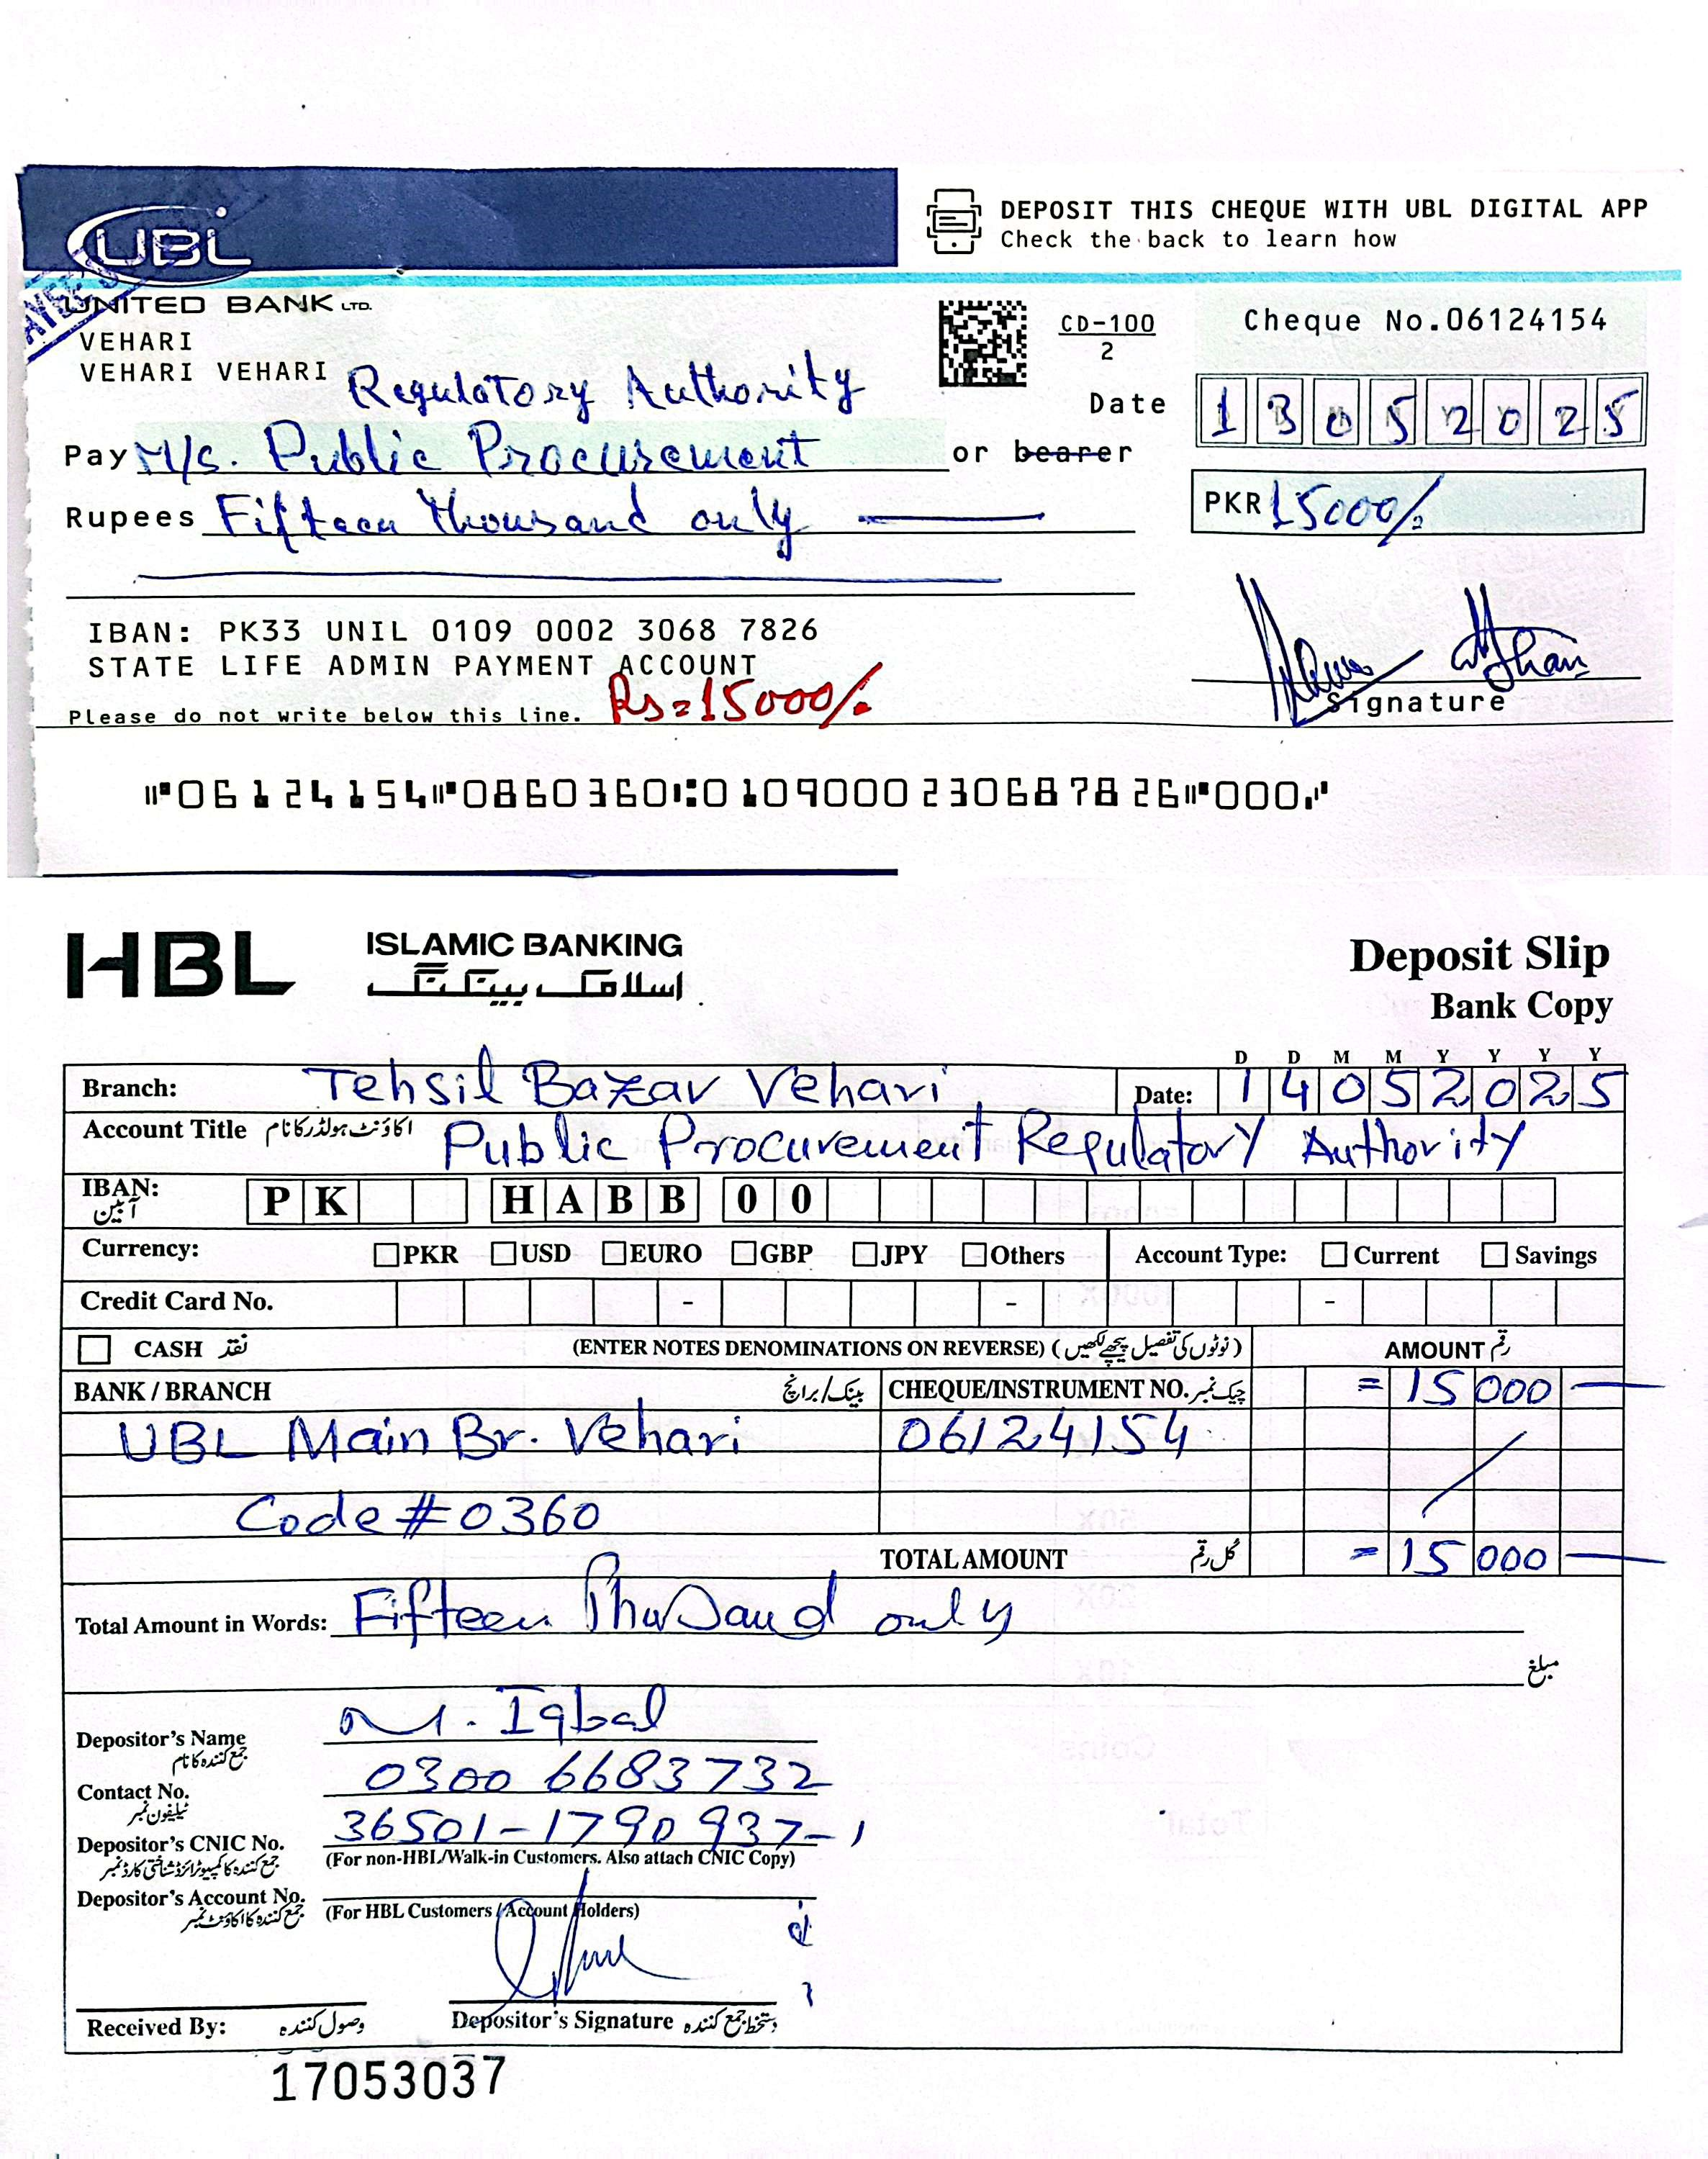 UBL
DEPOSIT THIS CHEQUE WITH UBL DIGITAL APP
Check the back to learn how
UNITED BANK LTD.
VEHARI
VEHARI VEHARI
CD-100
2
Cheque No.06124154
Date 13052025
Regulatory Authority
Pay M/s. Public Procurement or bearer
Rupees Fifteen thousand only
PKR 15000/-
IBAN: PK33 UNIL 0109 0002 3068 7826
STATE LIFE ADMIN PAYMENT ACCOUNT
Rs=15000/-
Please do not write below this line.
Signature
⑈06124154⑈0860360⑆0109000230687826⑈000⑈
HBL ISLAMIC BANKING
اسلامک بینکنگ
Deposit Slip
Bank Copy
D D M M Y Y Y Y
Branch: Tehsil Bazar Vehari Date: 14052025
Account Title اکاؤنٹ ہولڈر کا نام Public Procurement Regulatory Authority
IBAN: PK HABB 00
آئبین
Currency: PKR USD EURO GBP JPY Others Account Type: Current Savings
Credit Card No. - - -
CASH نقد (ENTER NOTES DENOMINATIONS ON REVERSE) (نوٹوں کی تفصیل پیچھے لکھیں) AMOUNT رقم
BANK / BRANCH بینک/برانچ CHEQUE/INSTRUMENT NO. چیک نمبر = 15 000
UBL Main Br. Vehari 06124154
Code # 0360
TOTAL AMOUNT کل رقم = 15 000
Total Amount in Words: Fifteen Thusand only
مبلغ
Depositor's Name M. Iqbal
جمع کنندہ کا نام
Contact No. 0300 6683732
ٹیلیفون نمبر
Depositor's CNIC No. 36501-1790937-1
جمع کنندہ کا کمپیوٹرائزڈ شناختی کارڈ نمبر (For non-HBL/Walk-in Customers. Also attach CNIC Copy)
Depositor's Account No.
جمع کنندہ کا اکاؤنٹ نمبر (For HBL Customers / Account Holders)
Received By: وصول کنندہ Depositor's Signature دستخط جمع کنندہ
17053037